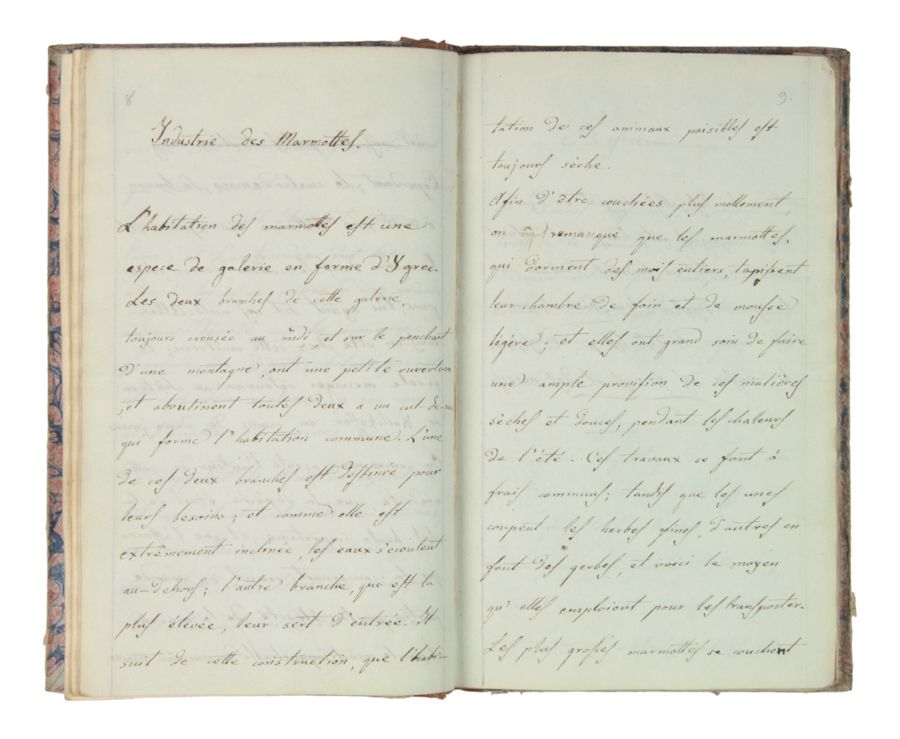 8
Industrie des Marmottes.
L'habitation des marmottes est une
espece de galerie en forme d'Y grec.
Les deux branches de cette galerie,
toujours creusée au midi, et sur le penchant
d'une montagne, ont une petite ouverture
, et aboutissent toutes deux a un cul-de-sac
qui forme l'habitation commune. L'une
de ces deux branches est destinée pour
leurs besoins ; et comme elle est
extremement inclinée, les eaux s'ecoulent
au-dehors ; l'autre branche, que est la
plus élevée, leur sert d'entrée. Il
suit de cette construction, que l'habi-
9.
tation de ces animaux paisibles est
toujours séche.
Afin d'être couchées plus mollement,
on remarqué que les marmottes,
qui dorment des mois entiers, tapissent
leur chambre de foin et de mousse
légère ; et elles ont grand soin de faire
une ample provision de ces matières
séches et douces, pendant les chaleurs
de l'été. Ces travaux ce font à
frais communs ; tandis que les unes
coupent les herbes fines, d'autres en
font des gerbes, et voici le moyen
qu'elles emploient pour les transporter.
Les plus grosses marmottes se couchent